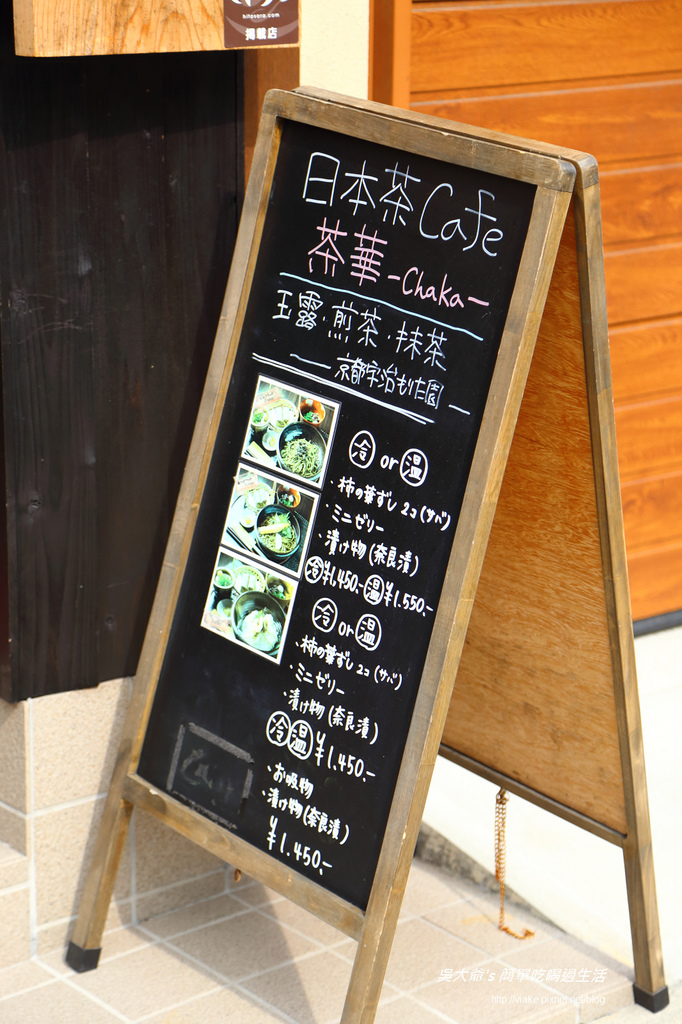 hitosara.com
掲載店
日本茶Cafe
茶華-Chaka-
玉露・煎茶・抹茶
京都宇治もりた園
冷or温
・柿の葉ずし 2コ(サバ)
・ミニゼリー
・漬け物(奈良漬)
冷¥1.450.- 温¥1.550.-
冷or温
・柿の葉ずし 2コ(サバ)
・ミニゼリー
・漬け物(奈良漬)
冷温¥1.450.-
・お吸物
・漬け物(奈良漬)
¥1.450.-
吳大爺's 簡單吃喝過生活